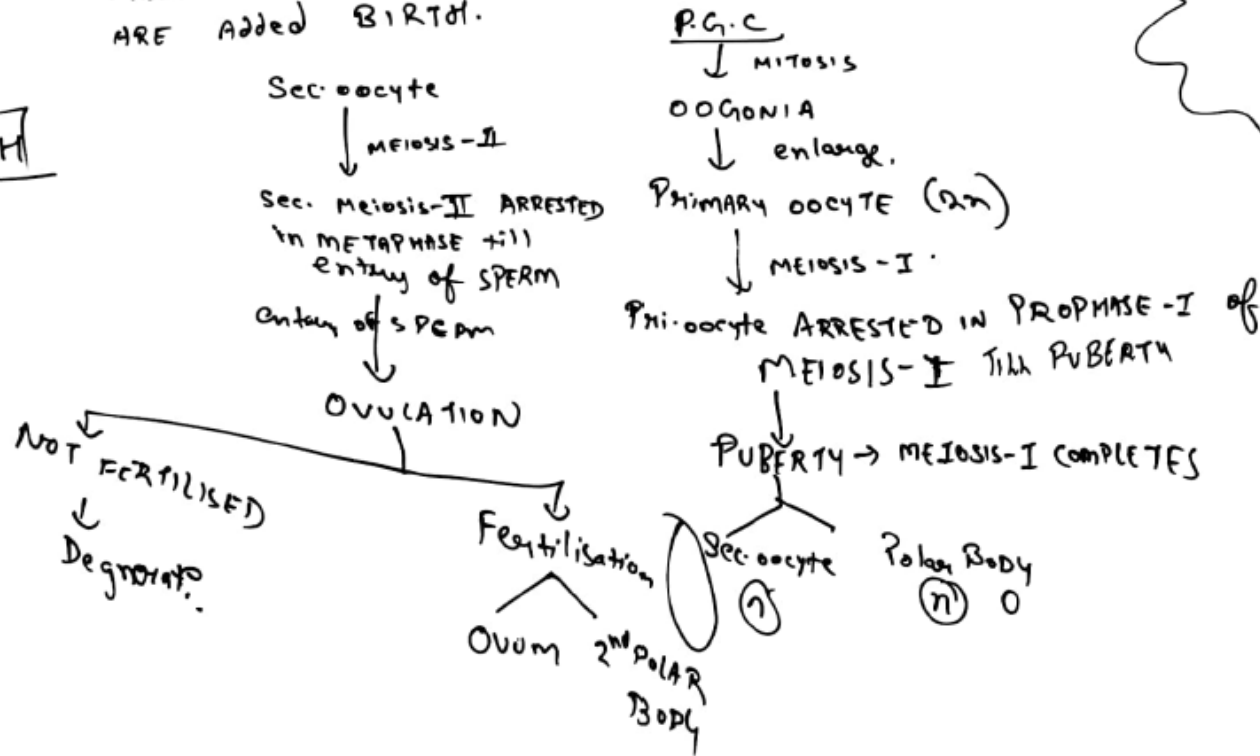 ARE Added BIRTH.
H
Sec. oocyte
MEIOSIS-II
Sec. Meiosis-II ARRESTED
in METAPHASE till
entry of SPERM
entry of SPERM
OVULATION
NOT FERTILISED
Fertilisation
Ovum
2nd POLAR
BODY
P.G.C
MITOSIS
OOGONIA
enlarge.
PRIMARY OOCYTE (2n)
MEIOSIS-I.
Pri.oocyte ARRESTED IN PROPHASE-I of
MEIOSIS-I Till PUBERTY
PUBERTY → MEIOSIS-I COMPLETES
Sec. oocyte
n
Polar Body
n O